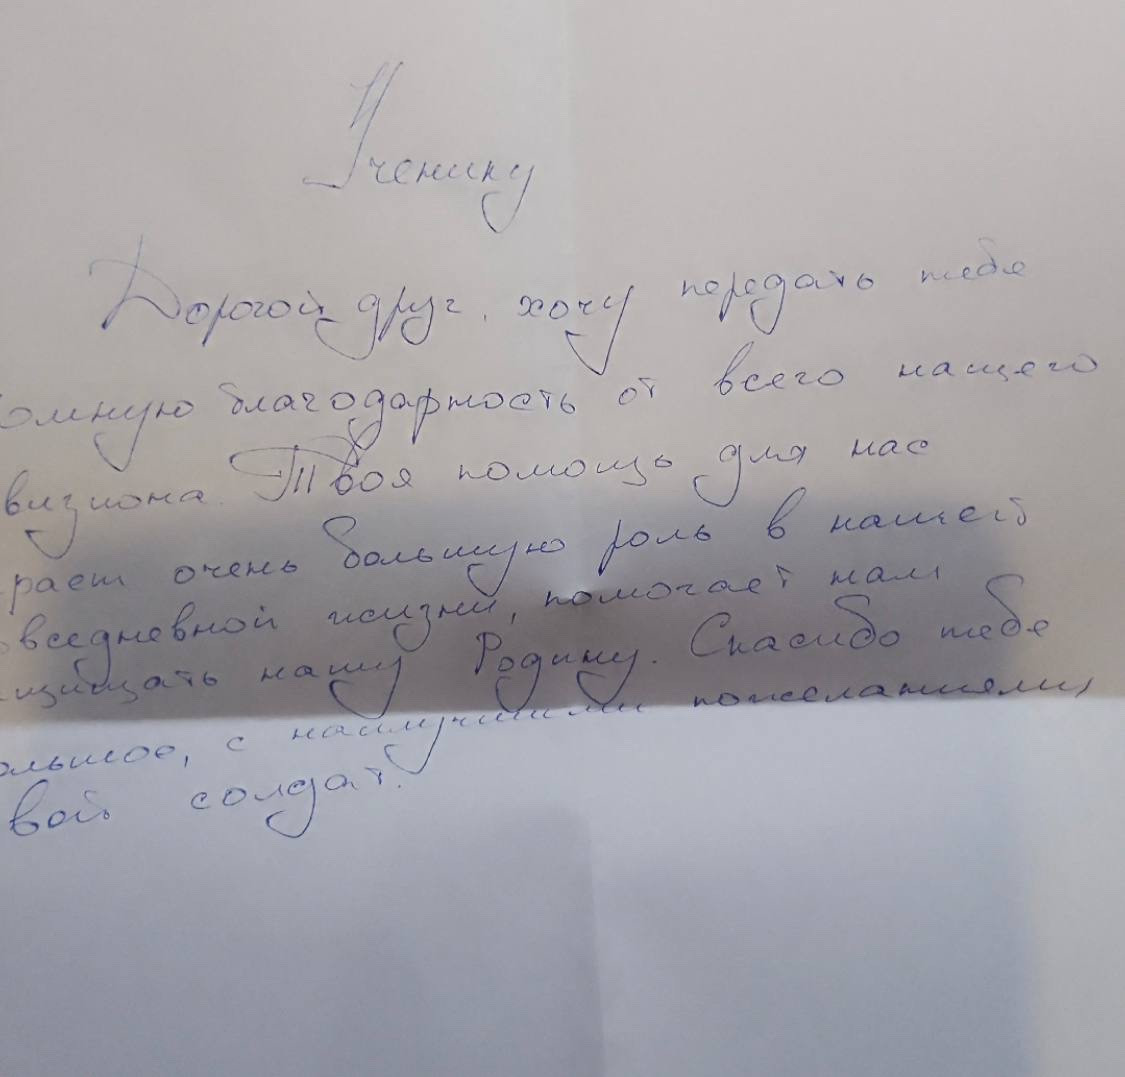 Ученику
Дорогой друг, хочу передать тебе
омную благодарность от всего нашего
визиона. Твоя помощь для нас
рает очень большую роль в нашей
овседневной жизни, помогает нам
щищать нашу Родину. Спасибо тебе
ольшое, с наилучшими пожеланиями,
вой солдат.